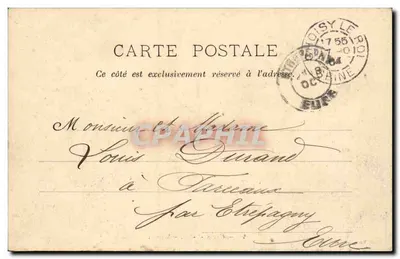 CARTE POSTALE
Ce côté est exclusivement réservé à l'adresse.
CHOISY LE ROI
17 55
SEINE
EURE
CPAPHIL
Monsieur et Madame
Louis Durand
à Farceaux
par Etrepagny
Eure